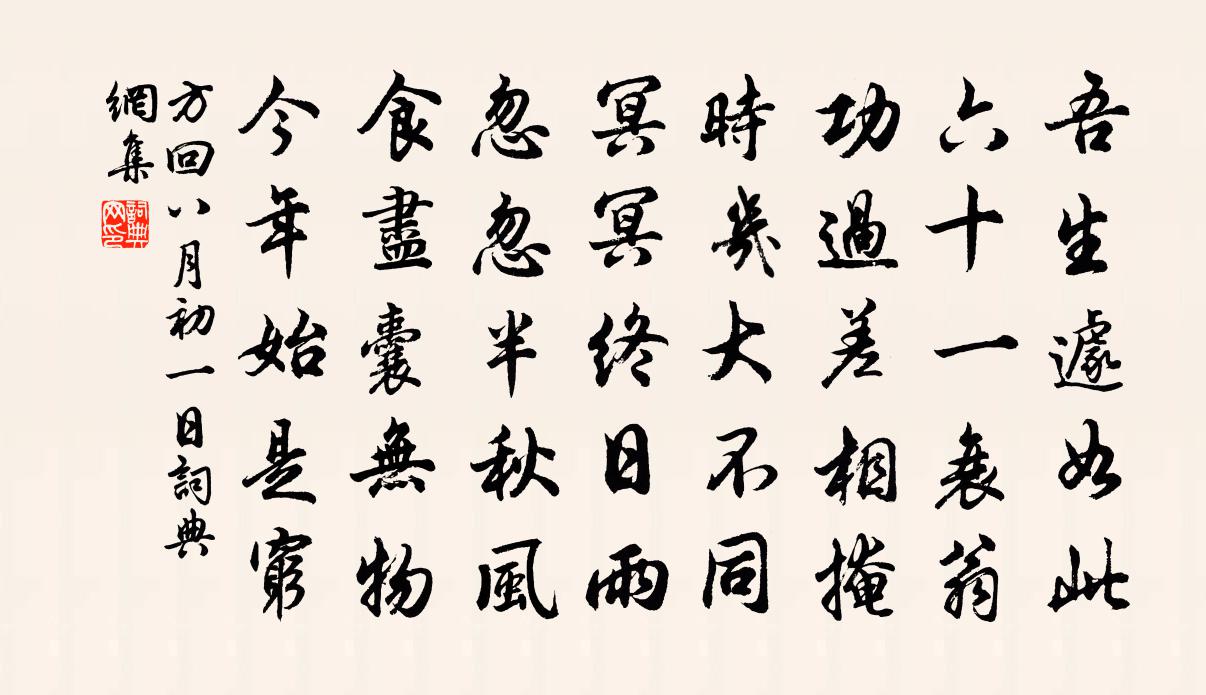 吾生遽如此
六十一衰翁
功過差相掩
時幾大不同
冥冥終日雨
忽忽半秋風
食盡囊無物
今年始是窮
方回八月初一日詞典
網集
詞典
网印